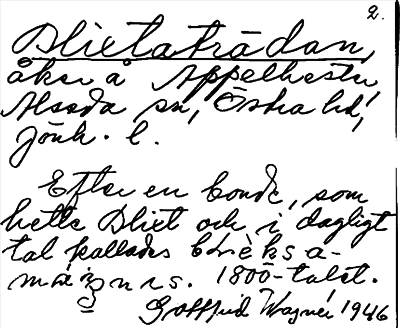 2.
Slietaträdan,
åker å Appelhester,
Alseda sn, Östra hd,
Jönk. l.
Efter en bonde, som
hette Sliet och i dagligt
tal kallades
1800-talet.
Gottfrid Wagnér 1946